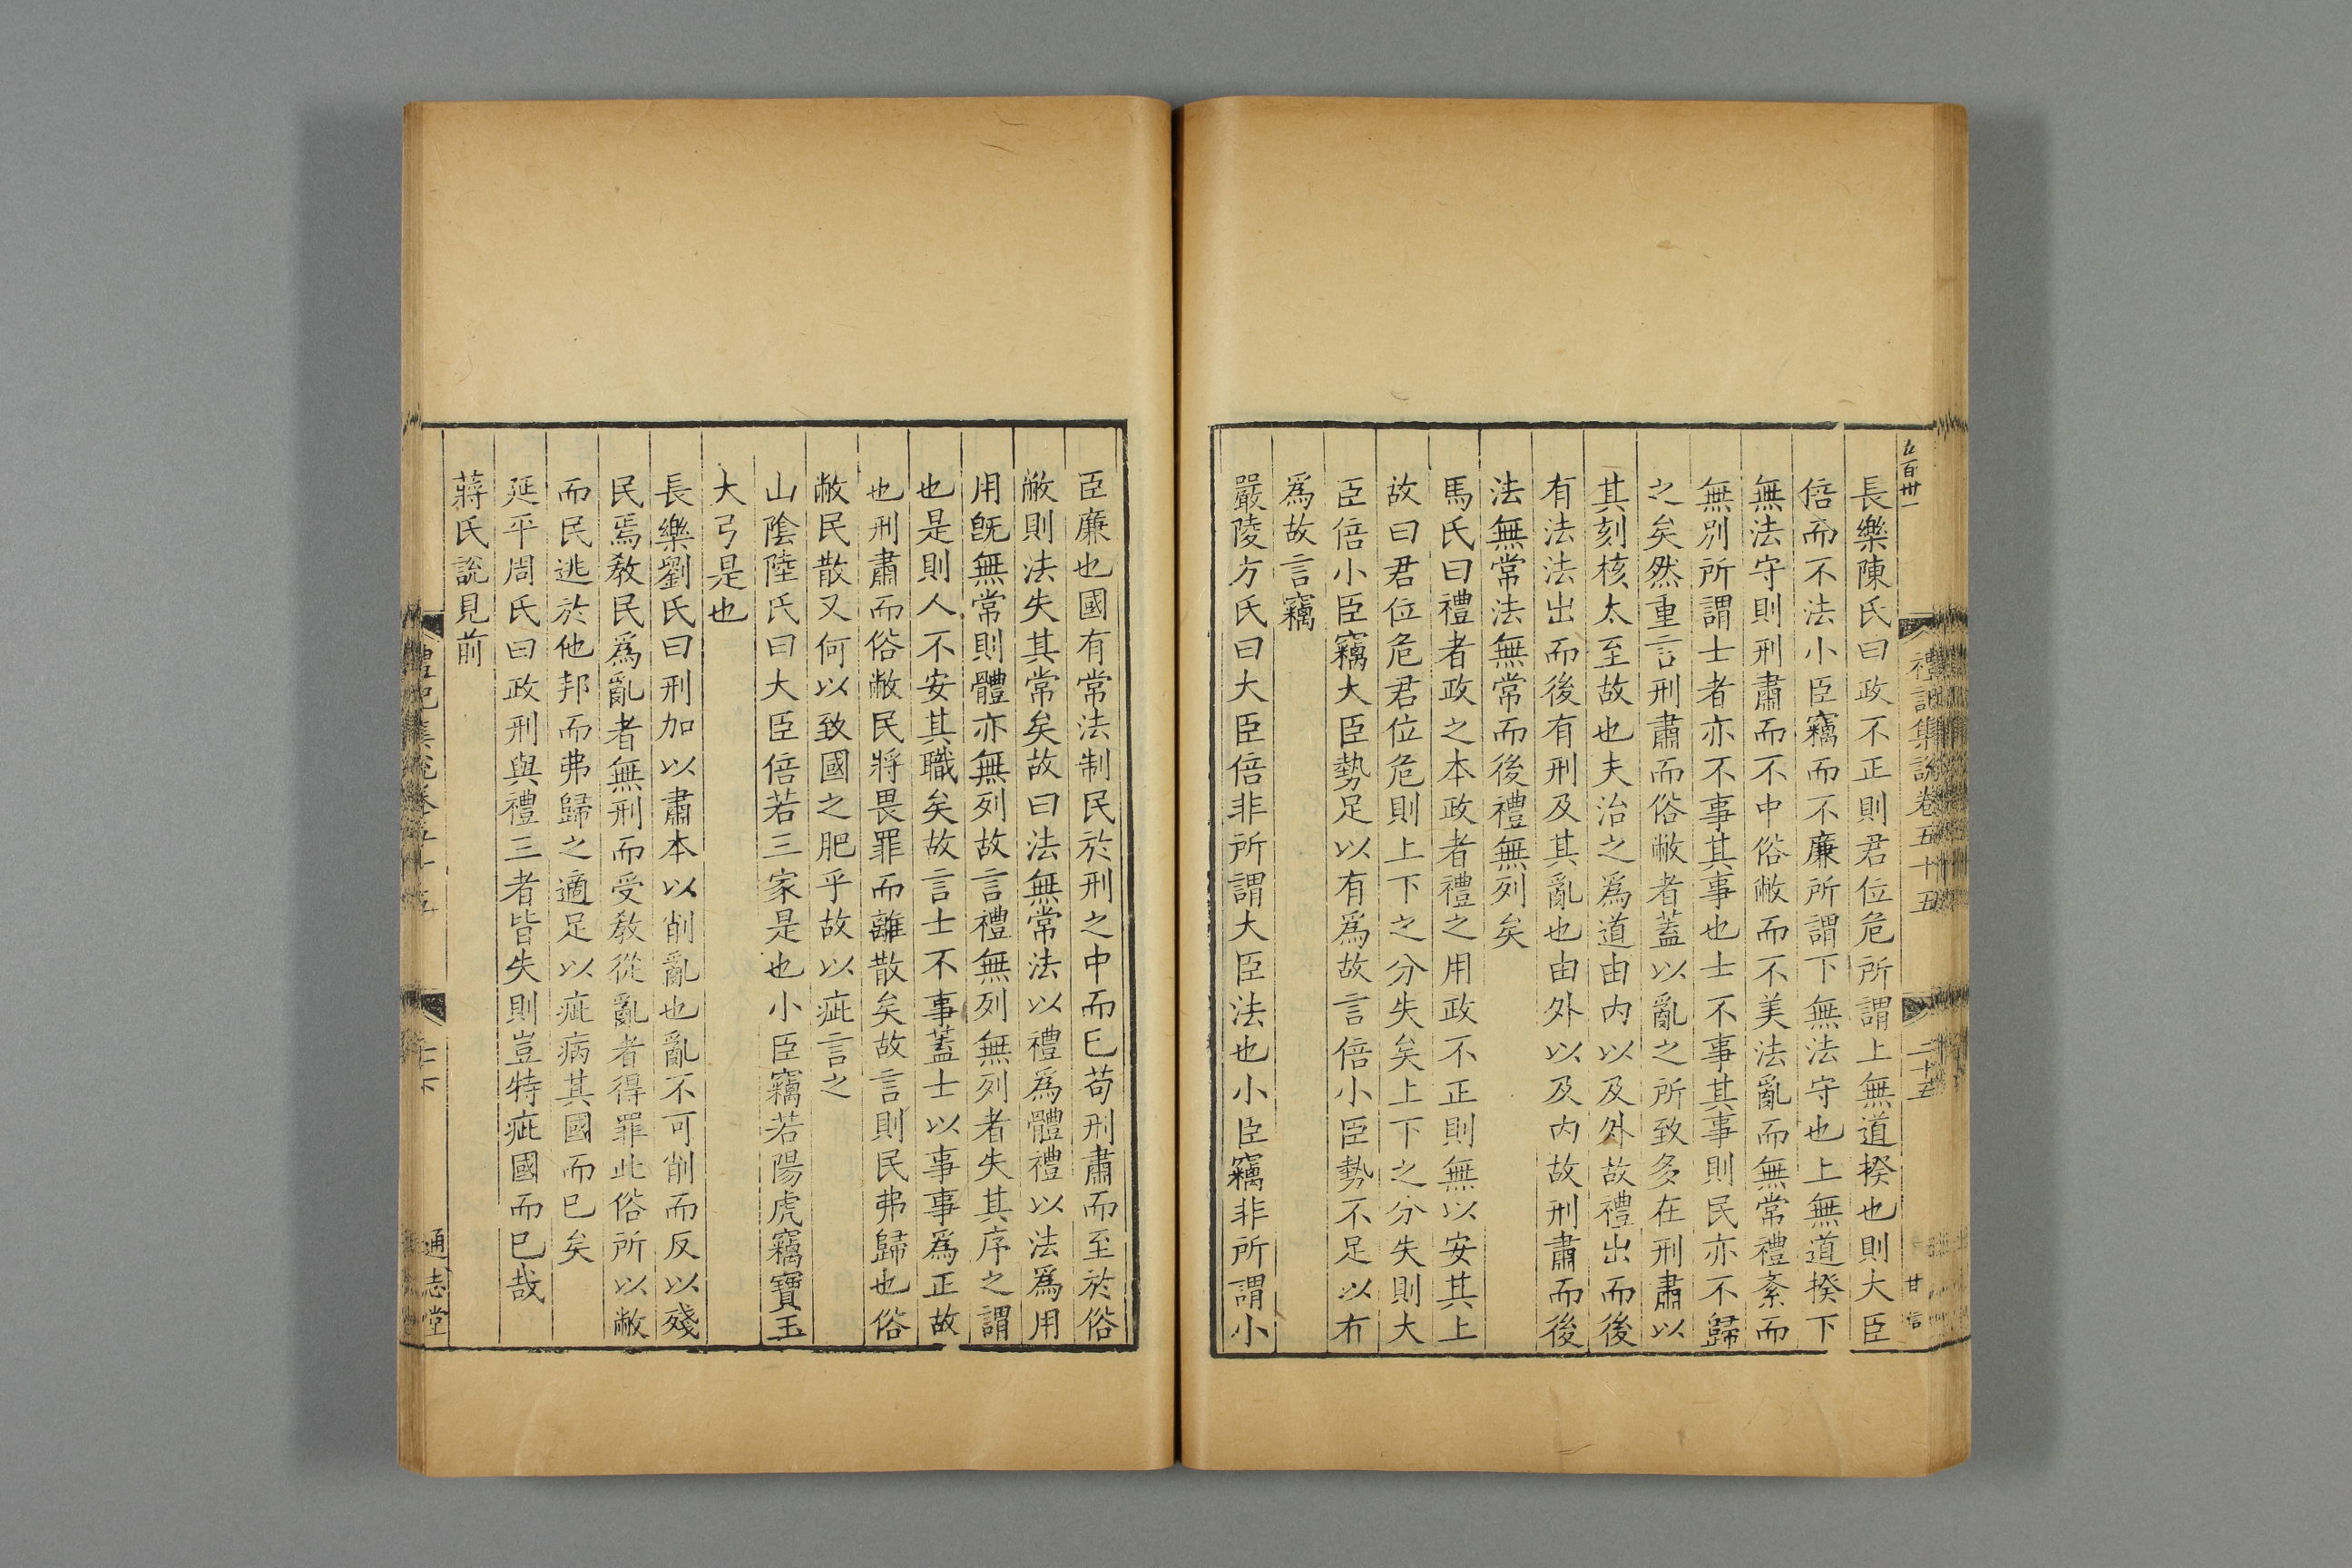 禮記集說卷五十五
二十五
甘信
長樂陳氏曰政不正則君位危所謂上無道揆也則大臣
倍而不法小臣竊而不廉所謂下無法守也上無道揆下
無法守則刑肅而不中俗敝而不美法亂而無常禮紊而
無別所謂士者亦不事其事也士不事其事則民亦不歸
之矣然重言刑肅而俗敝者蓋以亂之所致多在刑肅以
其刻核太至故也夫治之爲道由内以及外故禮出而後
有法法出而後有刑及其亂也由外以及内故刑肅而後
法無常法無常而後禮無列矣
馬氏曰禮者政之本政者禮之用政不正則無以安其上
故曰君位危君位危則上下之分失矣上下之分失則大
臣倍小臣竊大臣勢足以有爲故言倍小臣勢不足以有
爲故言竊
嚴陵方氏曰大臣倍非所謂大臣法也小臣竊非所謂小
臣廉也國有常法制民於刑之中而已苟刑肅而至於俗
敝則法失其常矣故曰法無常法以禮爲體禮以法爲用
用旣無常則體亦無列故言禮無列無列者失其序之謂
也是則人不安其職矣故言士不事蓋士以事事爲正故
也刑肅而俗敝民將畏罪而離散矣故言則民弗歸也俗
敝民散又何以致國之肥乎故以疵言之
山陰陸氏曰大臣倍若三家是也小臣竊若陽虎竊寶玉
大弓是也
長樂劉氏曰刑加以肅本以削亂也亂不可削而反以殘
民焉敎民爲亂者無刑而受敎從亂者得罪此俗所以敝
而民逃於他邦而弗歸之適足以疵病其國而已矣
延平周氏曰政刑與禮三者皆失則豈特疵國而已哉
蔣氏說見前
通志堂